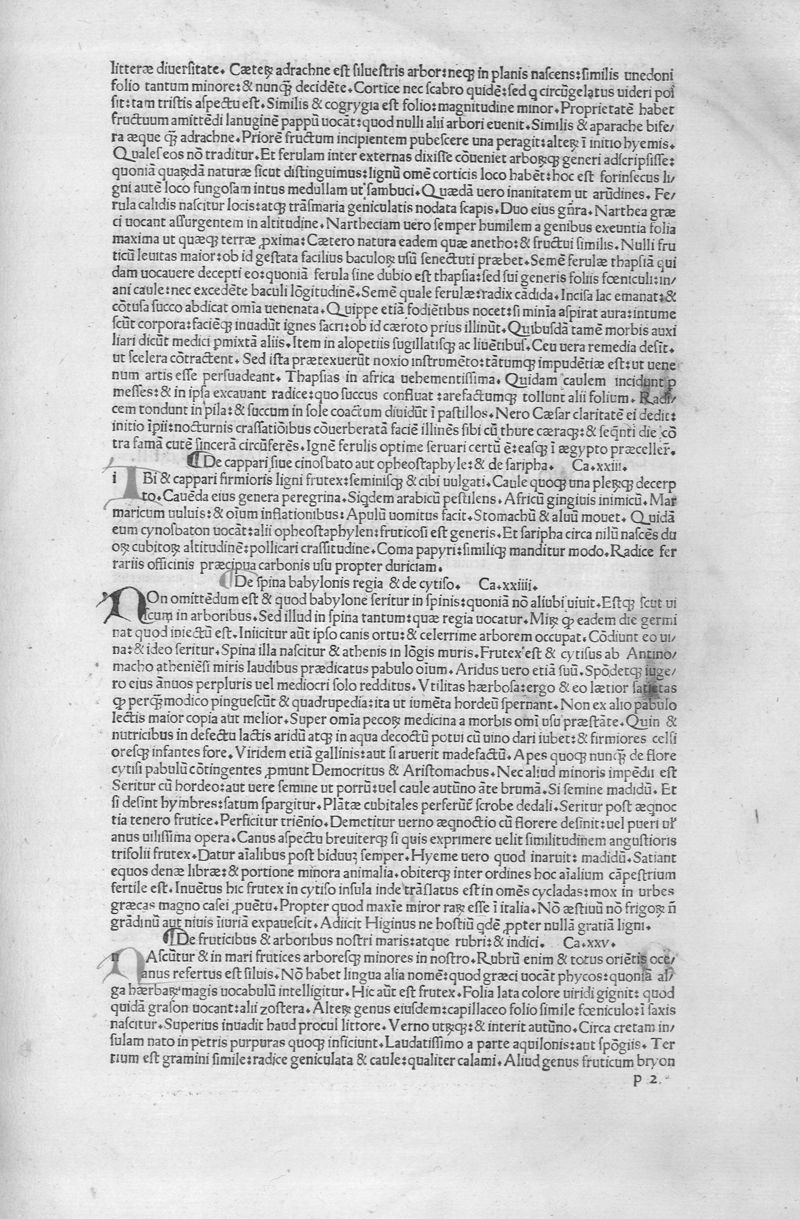 litteræ diuerſitate. Cæteꝝ adrachne eſt ſilueſtris arbor: neqꝫ in planis naſcens: ſimilis unedoni
folio tantum minore: & nunꝗ̄ decidēte. Cortice nec ſcabro quidē: ſed ꝗ circūgelatus uideri poſ
ſit: tam triſtis aſpectu eſt. Similis & cogrygia eſt folio: magnitudine minor. Proprietatē habet
fructuum amittēdi lanuginē pappū uocāt: quod nulli alii arbori euenit. Similis & aparache bife/
ra æque ꝗ̄ adrachne. Priorē fructum incipientem pubeſcere una peragit: alteꝝ ī initio hyemis.
Qualeſ eos nō traditur. Et ferulam inter externas dixiſſe cōueniet arboꝝqꝫ generi adſcripſiſſe:
quoniā quaꝝdā naturæ ſicut diſtinguimus: lignū omē corticis loco habēt: hoc eſt forinſecus li/
gni autē loco fungoſam intus medullam ut ſambuci. Quædā uero inanitatem ut arūdines. Fe/
rula calidis naſcitur locis: atqꝫ trāſmaria geniculatis nodata ſcapis. Duo eius gn̄ra. Narthea græ
ci uocant aſſurgentem in altitudine. Nartheciam uero ſemper humilem a genibus exeuntia folia
maxima ut quæqꝫ terræ ꝓxima: Cætero natura eadem quæ anetho: & fructui ſimilis. Nulli fru
ticū leuitas maior: ob id geſtata facilius baculoꝝ uſū ſenectuti præbet. Semē ferulæ thapſiā qui
dam uocauere decepti eo: quoniā ferula ſine dubio eſt thapſia: ſed ſui generis foliis fœniculi: in/
ani caule: nec excedēte baculi lōgitudinē. Semē quale ferulæ: radix cādida. Inciſa lac emanat: &
cōtuſa ſucco abdicat omīa uenenata. Quippe etiā fodiētibus nocet: ſi minīa aſpirat aura: intume
ſcūt corpora: faciēqꝫ inuadūt ignes ſacri: ob id cæroto prius illinūt. Quibuſdā tamē morbis auxi
liari dicūt medici pmixtā aliis. Item in alopetiis ſugillatiſqꝫ ac liuētibuſ. Ceu uera remedia deſit.
ut ſcelera cōtractent. Sed iſta prætexuerūt noxio inſtrumēto: tātumqꝫ impudētiæ eſt: ut uene
num artis eſſe perſuadeant. Thapſias in africa uehementiſſima. Quidam caulem incidunt p
meſſes: & in ipſa excauant radice: quo ſuccus confluat: arefactumqꝫ tollunt alii folium. Radi/
cem tondunt in pila: & ſuccum in ſole coactum diuidūt ī paſtillos. Nero Cæſar claritatē ei dedit:
initio īpii: nocturnis craſſatiōibus cōuerberatā faciē illinēs ſibi cū thure cæraqꝫ: & ſeqn̄ti die cō
tra famā cutē ſincerā circūferēs. Ignē ferulis optime ſeruari certū ē: eaſqꝫ ī ægypto præceller̄.
¶De cappari ſiue cinoſbato aut opheoſtaphyle: & de ſaripha. Ca.xxiii.
iBi & cappari firmioris ligni frutex: ſeminiſqꝫ & cibi uulgati. Caule quoqꝫ una pleꝝqꝫ decerp
to. Cauēda eius genera peregrina. Siqdem arabicū peſtilens. Africū gingiuis inimicū. Mar
maricum uuluis: & oīum inflationibus: Apulū uomitus facit. Stomachū & aluū mouet. Quidā
eum cynoſbaton uocāt: alii opheoſtaphylen: fruticoſi eſt generis. Et ſaripha circa nilū naſcēs du
oꝝ cubitoꝝ altitudinē: pollicari craſſitudine. Coma papyri: ſimiliqꝫ manditur modo. Radice fer
rariis officinis præcipua carbonis uſu propter duriciam.
¶De ſpina babylonis regia & de cytiſo. Ca.xxiiii.
NOn omittēdum eſt & quod babylone ſeritur in ſpinis: quoniā nō aliubi uiuit. Eſtqꝫ ſcut ui
ſcum in arboribus. Sed illud in ſpina tantum: quæ regia uocatur. Miꝝ ꝙ eadem die germi
nat quod iniectū eſt. Iniicitur aūt ipſo canis ortu: & celerrime arborem occupat. Cōdiunt eo ui/
na: & ideo ſeritur. Spina illa naſcitur & athenis in lōgis muris. Frutex eſt & cytiſus ab Antino/
macho atheniēſi miris laudibus prædicatus pabulo oīum. Aridus uero etiā ſuū. Spōdetqꝫ iuge/
ro eius ānuos perpluris uel mediocri ſolo redditus. Vtilitas hærboſa: ergo & eo lætior ſatietas
ꝙ perqꝫ modico pingueſcūt & quadrupedia: ita ut iumēta hordeū ſpernant. Non ex alio pabulo
lectis maior copia aut melior. Super omīa pecoꝝ medicina a morbis omī uſu præſtāte. Quin &
nutricibus in defectu lactis aridū atqꝫ in aqua decoctū potui cū uino dari iubet: & firmiores celſi
oreſqꝫ infantes fore. Viridem etiā gallinis: aut ſi aruerit madefactū. Apes quoqꝫ nunꝗ̄ de flore
cytiſi pabulū cōtingentes ꝓmunt Democritus & Ariſtomachus. Nec aliud minoris impēdii eſt
Seritur cū hordeo: aut uere ſemine ut porrū: uel caule autūno āte brumā. Si ſemine madidū. Et
ſi deſint hymbres: ſatum ſpargitur. Plātæ cubitales perferūt̄ ſcrobe dedali. Seritur poſt æqnoc
tia tenero frutice. Perficitur triēnio. Demetitur uerno æqnoctio cū florere deſinit: uel pueri ul̕
anus uiliſſima opera. Canus aſpectu breuiterqꝫ ſi quis exprimere uelit ſimilitudinem anguſtioris
trifolii frutex. Datur aīalibus poſt biduuꝫ ſemper. Hyeme uero quod inaruit: madidū. Satiant
equos denæ libræ: & portione minora animalia. obiterqꝫ inter ordines hoc aīalium cāpeſtrium
fertile eſt. Inuētus hic frutex in cytiſo inſula inde trāſlatus eſt in omēs cycladas: mox in urbes
græcas magno caſei ꝓuētu. Propter quod maxīe miror raꝝ eſſe ī italia. Nō æſtiuū nō frigoꝝ n̄
grādinū aut niuis īiuriā expaueſcit. Adiicit Higinus ne hoſtiū qdē ꝓpter nullā gratiā ligni.
¶De fruticibus & arboribus noſtri maris: atque rubri: & indici. Ca.xxv.
nAſcūtur & in mari frutices arboreſqꝫ minores in noſtro. Rubrū enim & totus oriētis oce/
anus refertus eſt ſiluis. Nō habet lingua alia nomē: quod græci uocāt phycos: quoniā al/
ga hærbaꝝ magis uocabulū intelligitur. Hic aūt eſt frutex. Folia lata colore uiridi gignit: quod
quidā graſon uocant: alii zoſtera. Alteꝝ genus eiuſdem: capillaceo folio ſimile fœniculo: ī ſaxis
naſcitur. Superius inuadit haud procul littore. Verno utꝝqꝫ: & interit autūno. Circa cretam in/
ſulam nato in petris purpuras quoqꝫ inficiunt. Laudatiſſimo a parte aquilonis: aut ſpōgiis. Ter
tium eſt gramini ſimile: radice geniculata & caule: qualiter calami. Aliud genus fruticum bryon
p 2.